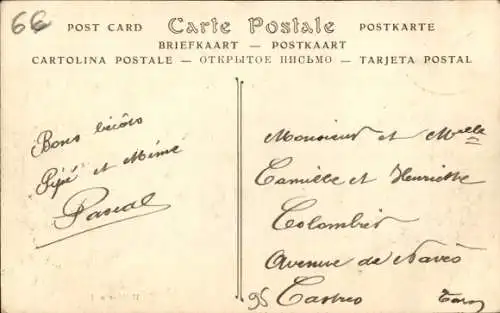 66
POST CARD Carte Postale POSTKARTE
BRIEFKAART — POSTKAART
CARTOLINA POSTALE — ОТКРЫТОЕ ПИСЬМО — TARJETA POSTAL
Bons bécots
Pépé et Mémé
Pascal
Monsieur et Melle
Camille et Henriette
Colombié
Avenue de Navès
95 Castres Tarn